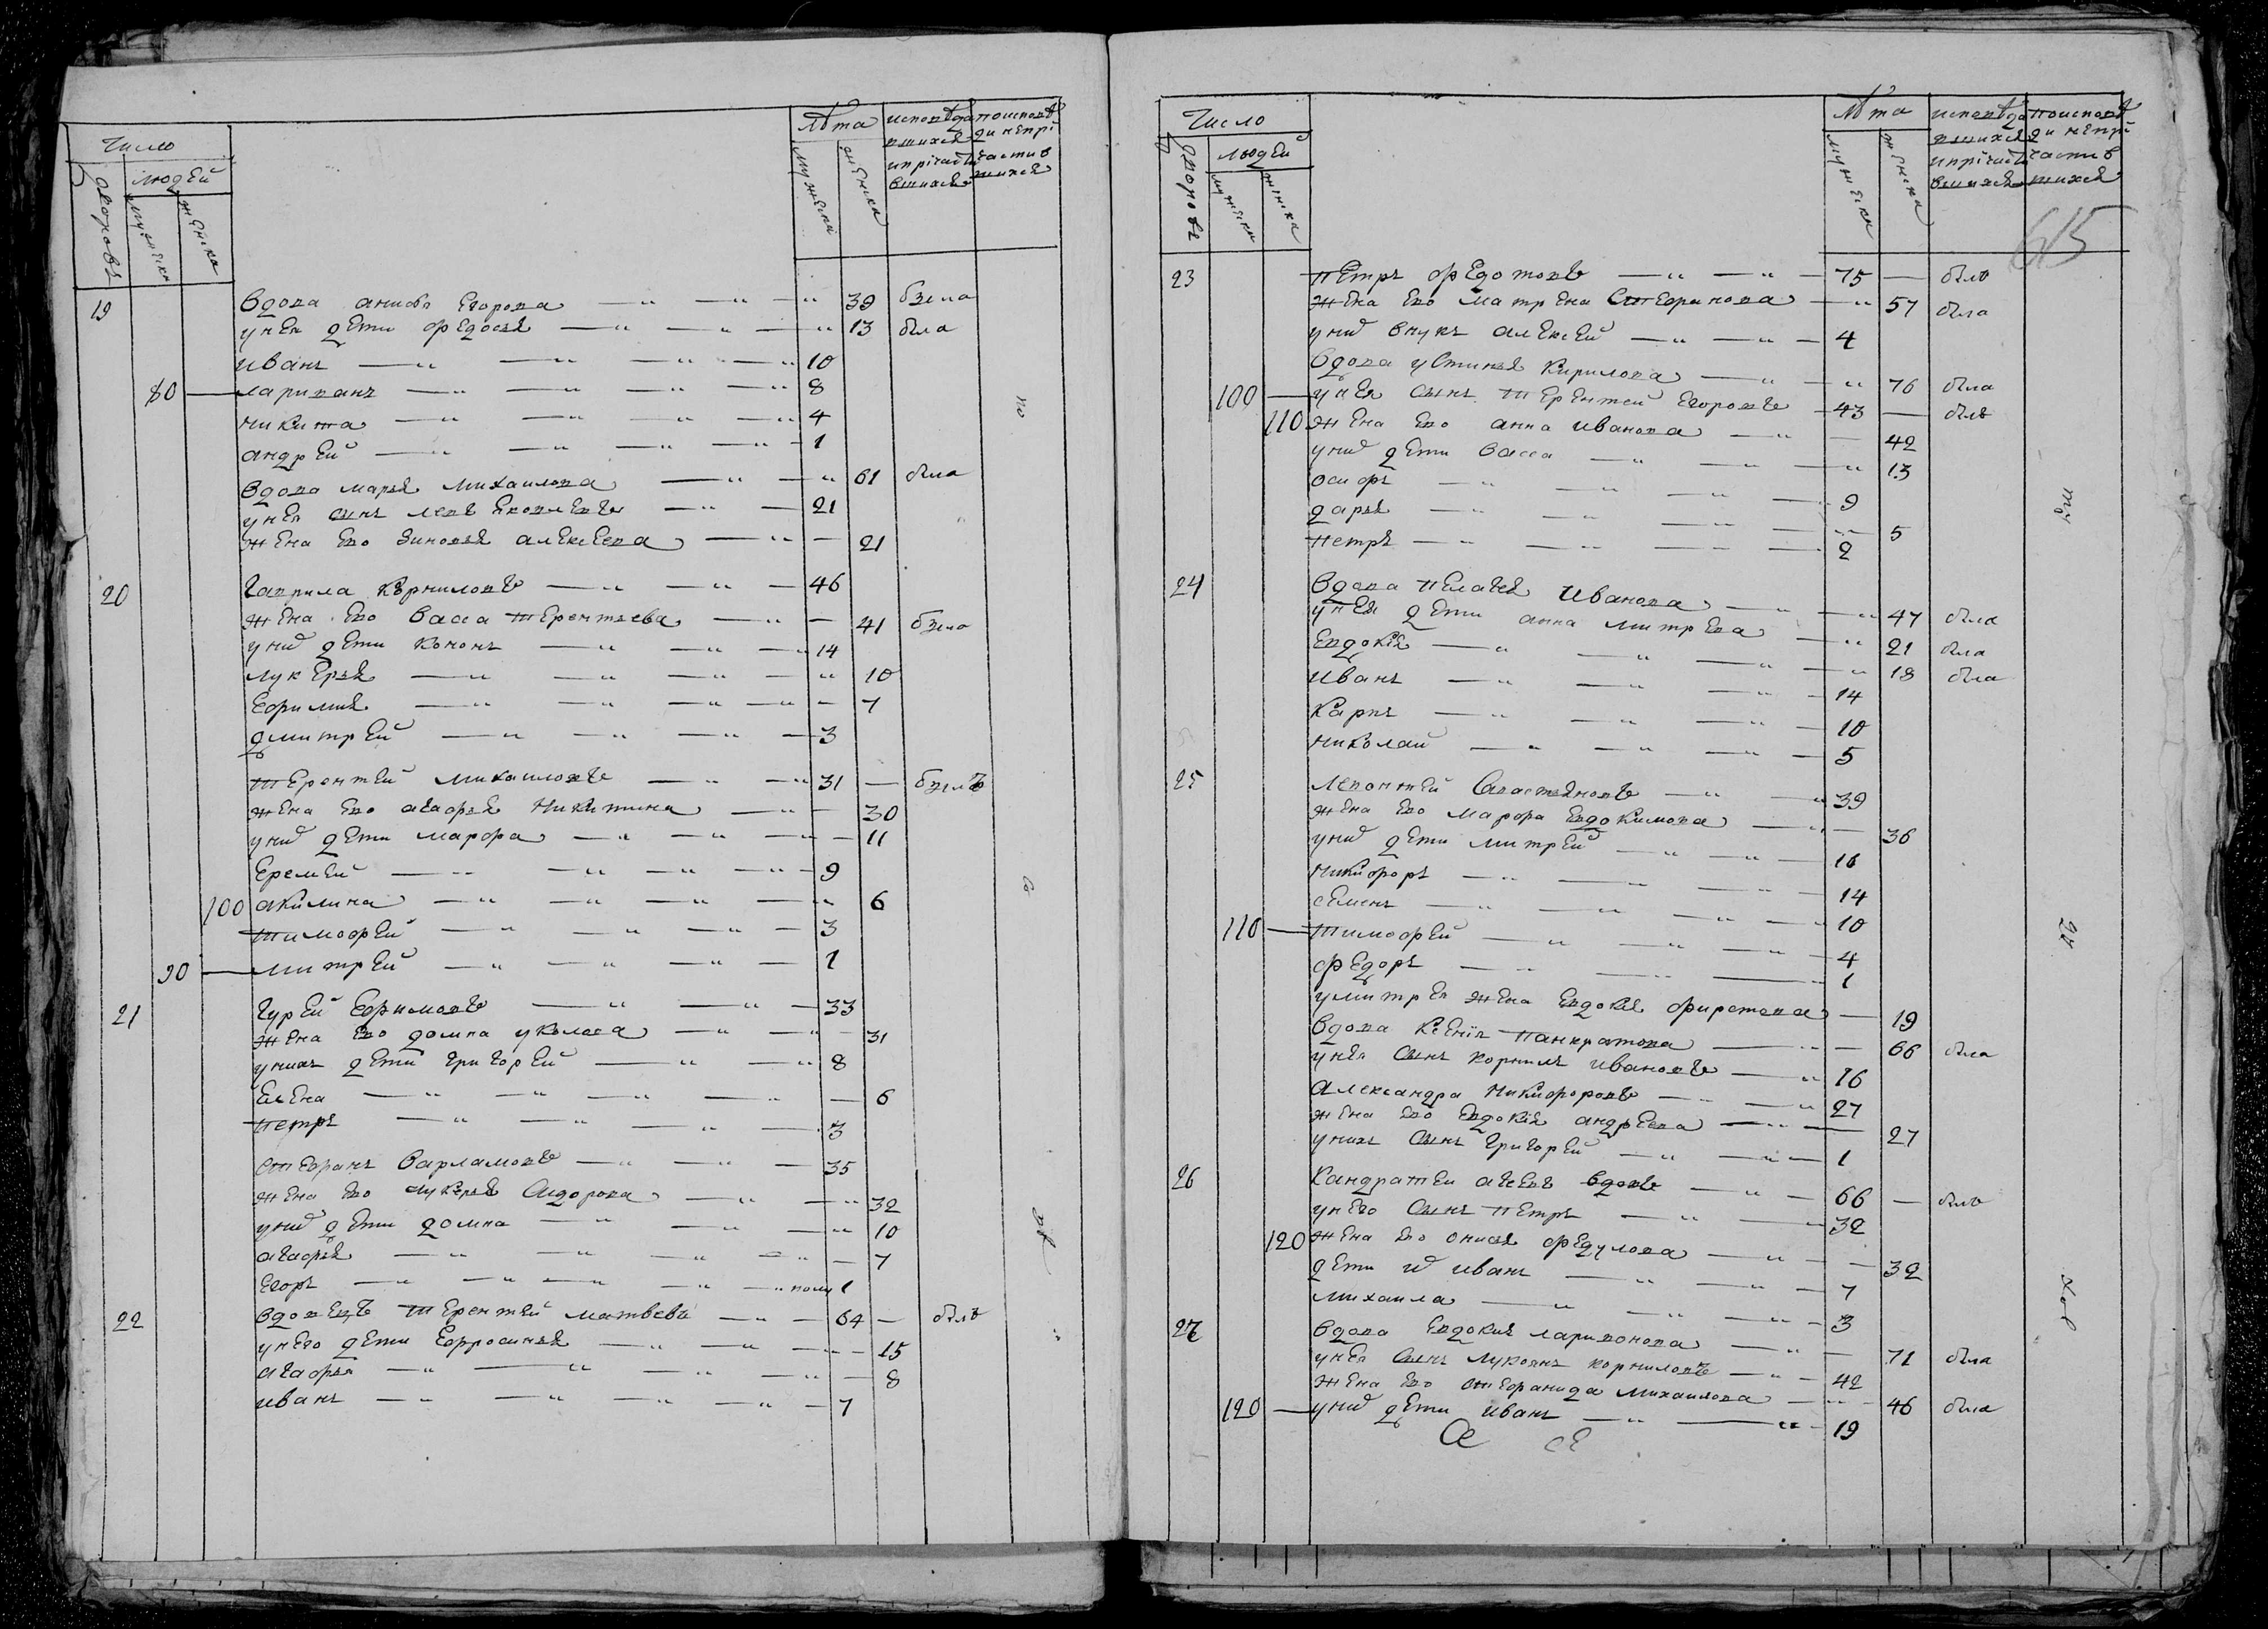 Число
людей
дворовъ
мужеска
женска
лѣта
мужеска
женска
исповѣдавшихся и причастившихся
по исповѣди непричастившихся
19 вдова анисья Егорова 39 была
у неи дети федосья 13 была
иванъ 10
80 лариванъ 8
никита 4
андрей 1
вдова марья михаилова 61 была
у неи сынъ левъ яковлевъ 21
жена ево зиновья алексеева 21
20 гаврила корниловъ 46
жена ево васса терентьева 41 была
у них дети кононъ 14
лукерья 10
Ефимия 7
дмитрей 3
терентей михаиловъ 31 — былъ
жена ево агафья никитина 30
у них дети марфа 11
Еремей 9
100 акилина 6
тимофей 3
90 митрей 1
21 гурей Ефимовъ 33
жена ево домна 31
у нихъ дети григорей 8
Елена 6
петръ 3
стефанъ варламовъ 35
жена ево лукерья сидорова 32
у них дети домна 10
агафья 7
Егоръ полу 1
22 вдовецъ терентей матвеевъ 64 — былъ
у него дети Ефросинья 15
агафья 8
иванъ 7
но
Число
людей
дворовъ
мужеска
женска
лѣта
мужеска
женска
исповѣдавшихся и причастившихся
по исповѣди непричастившихся
615
23 петръ федотовъ 75 — былъ
жена ево матрена стефанова 57 была
у них внукъ алексей 4
вдова устинья кирилова 76 была
100 у неи сынъ терентей Егоровъ 43 — былъ
110 жена ево анна иванова 42
у них дети васса 13
осифъ 9
дарья 5
петръ 2
24 вдова пелагея иванова 47 была
у неи дети анна митрева 21 была
Евдокия 18 была
иванъ 14
карпъ 10
николаи 5
25 левонтей савостьяновъ 39
жена ево марфа Евдокимова 36
у них дети митрей 16
никифоръ 14
семенъ 10
110 тимофей 4
федоръ 1
у митрея жена Евдокия фирстова 19
вдова ксения панкратова 66 была
у неи сынъ корнилъ ивановъ 16
александра никифоровъ 27
жена ево Евдокия андреева 27
у нихъ сынъ григорей 1
26 кандратеи агеевъ вдовъ 66 — былъ
у него сынъ петръ 32
120 жена ево онисья федулова 32
дети их иванъ 7
михаила 3
27 вдова Евдокия ларивонова 71 была
у неи сынъ лукоянъ корниловъ 42
жена ево стефанида михаилова 46 была
120 у них дети иванъ 19